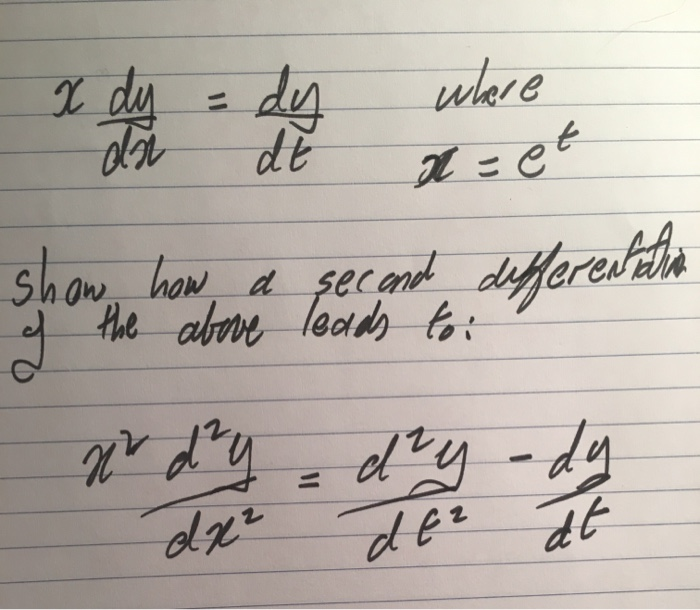 x dy/dx = dy/dt where
x = e^t
Show how a second differentiation
of the above leads to:
x² d²y/dx² = d²y/dt² - dy/dt